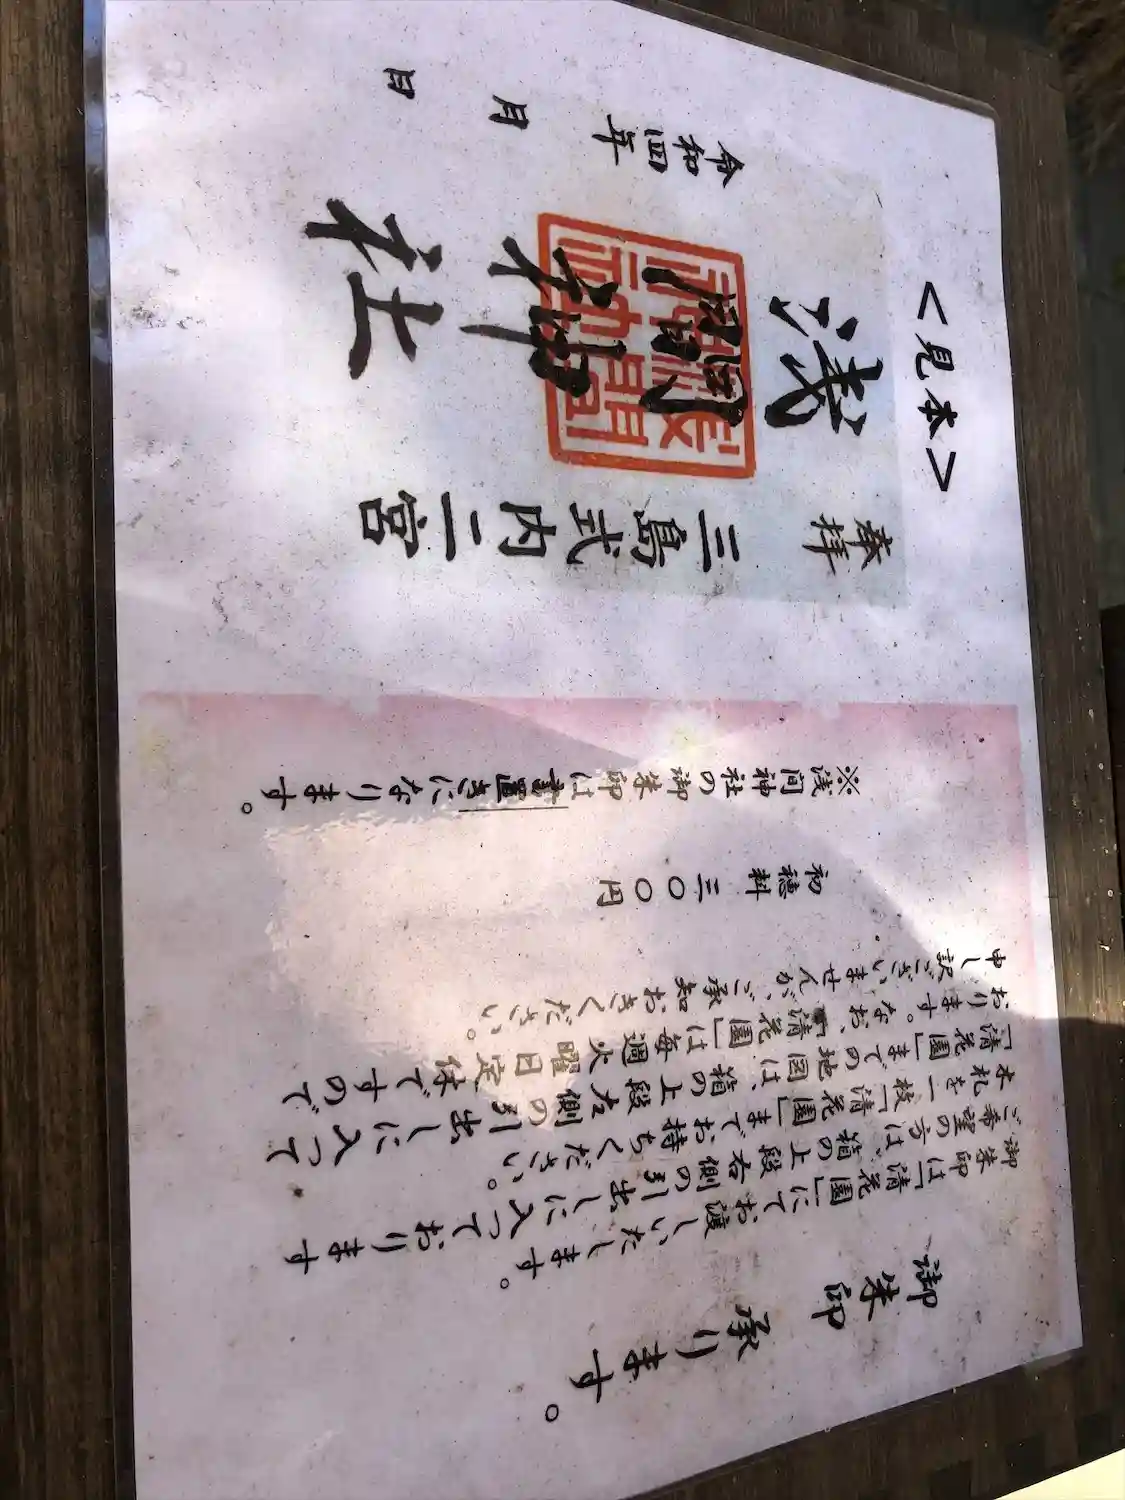 御朱印承ります。
御朱印は「清花園」にてお渡しいたします。
ご希望の方は、箱の上段右側の引出しに入っております
木札を一枚「清花園」までお持ちください。
「清花園」までの地図は、箱の上段左側の引出しに入って
おります。なお、「清花園」は毎週火曜日定休ですので
申し訳ございませんが、ご承知おきください。
初穂料 三〇〇円
※浅間神社の御朱印は書置きになります。
<見本>
奉拝
三島式内二宮
浅間神社
令和四年 月 日